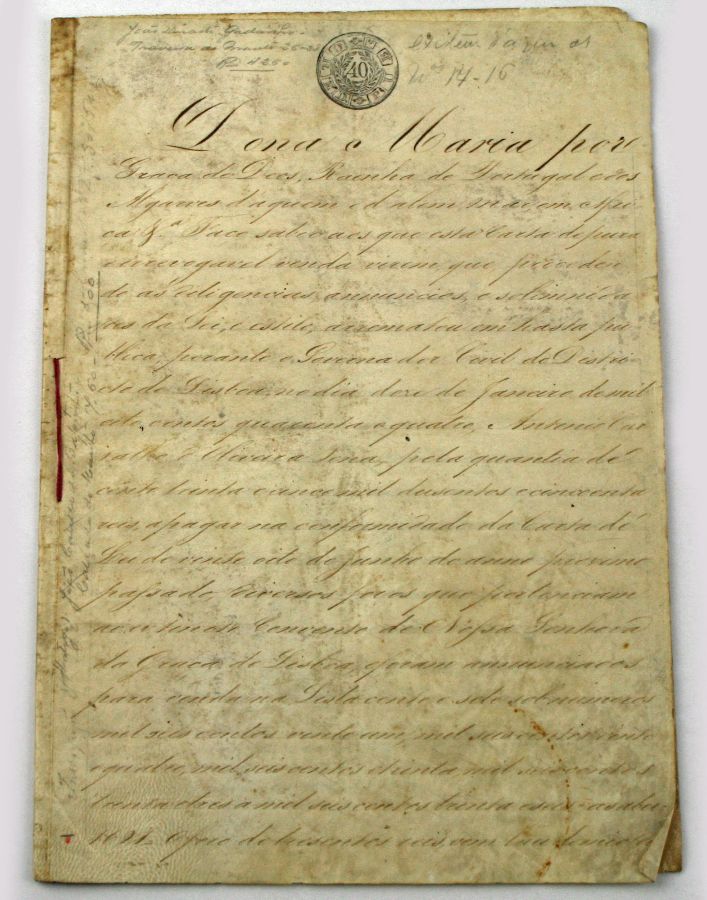 João Duarte
Travessa do
40
Nos 14-16
Dona Maria por
Graça de Deos, Rainha de Portugal e dos
Algarves d'aquem e d'alem mar em Afri
ca &.ª Faço saber aos que esta Carta de pura
e irrevogavel venda virem, que proceden
do as diligencias, annuncios, e solemnida
des da Lei, e estilo, arrematou em hasta pu
blica, perante o Governador Civil do Distri
cto de Lisboa, no dia doze de Janeiro de mil
oito centos quarenta e quatro, Antonio Car
valho d'Oliveira pela quantia de
cento trinta e cinco mil duzentos e cincoenta
reis, a pagar na conformidade da Carta de
Lei de vinte oito de Junho do anno proximo
passado, diversos foros que pertenciam
ao extincto Convento de Nossa Senhora
da Graça de Lisboa, e foram annunciados
para venda na Lista cento e sete sob numeros
mil seis centos vinte um, mil seis centos vinte
quatro, mil seis centos trinta, mil seis centos
trinta e dois a mil seis centos trinta e seis, a saber:
1621. O foro de trezentos reis com